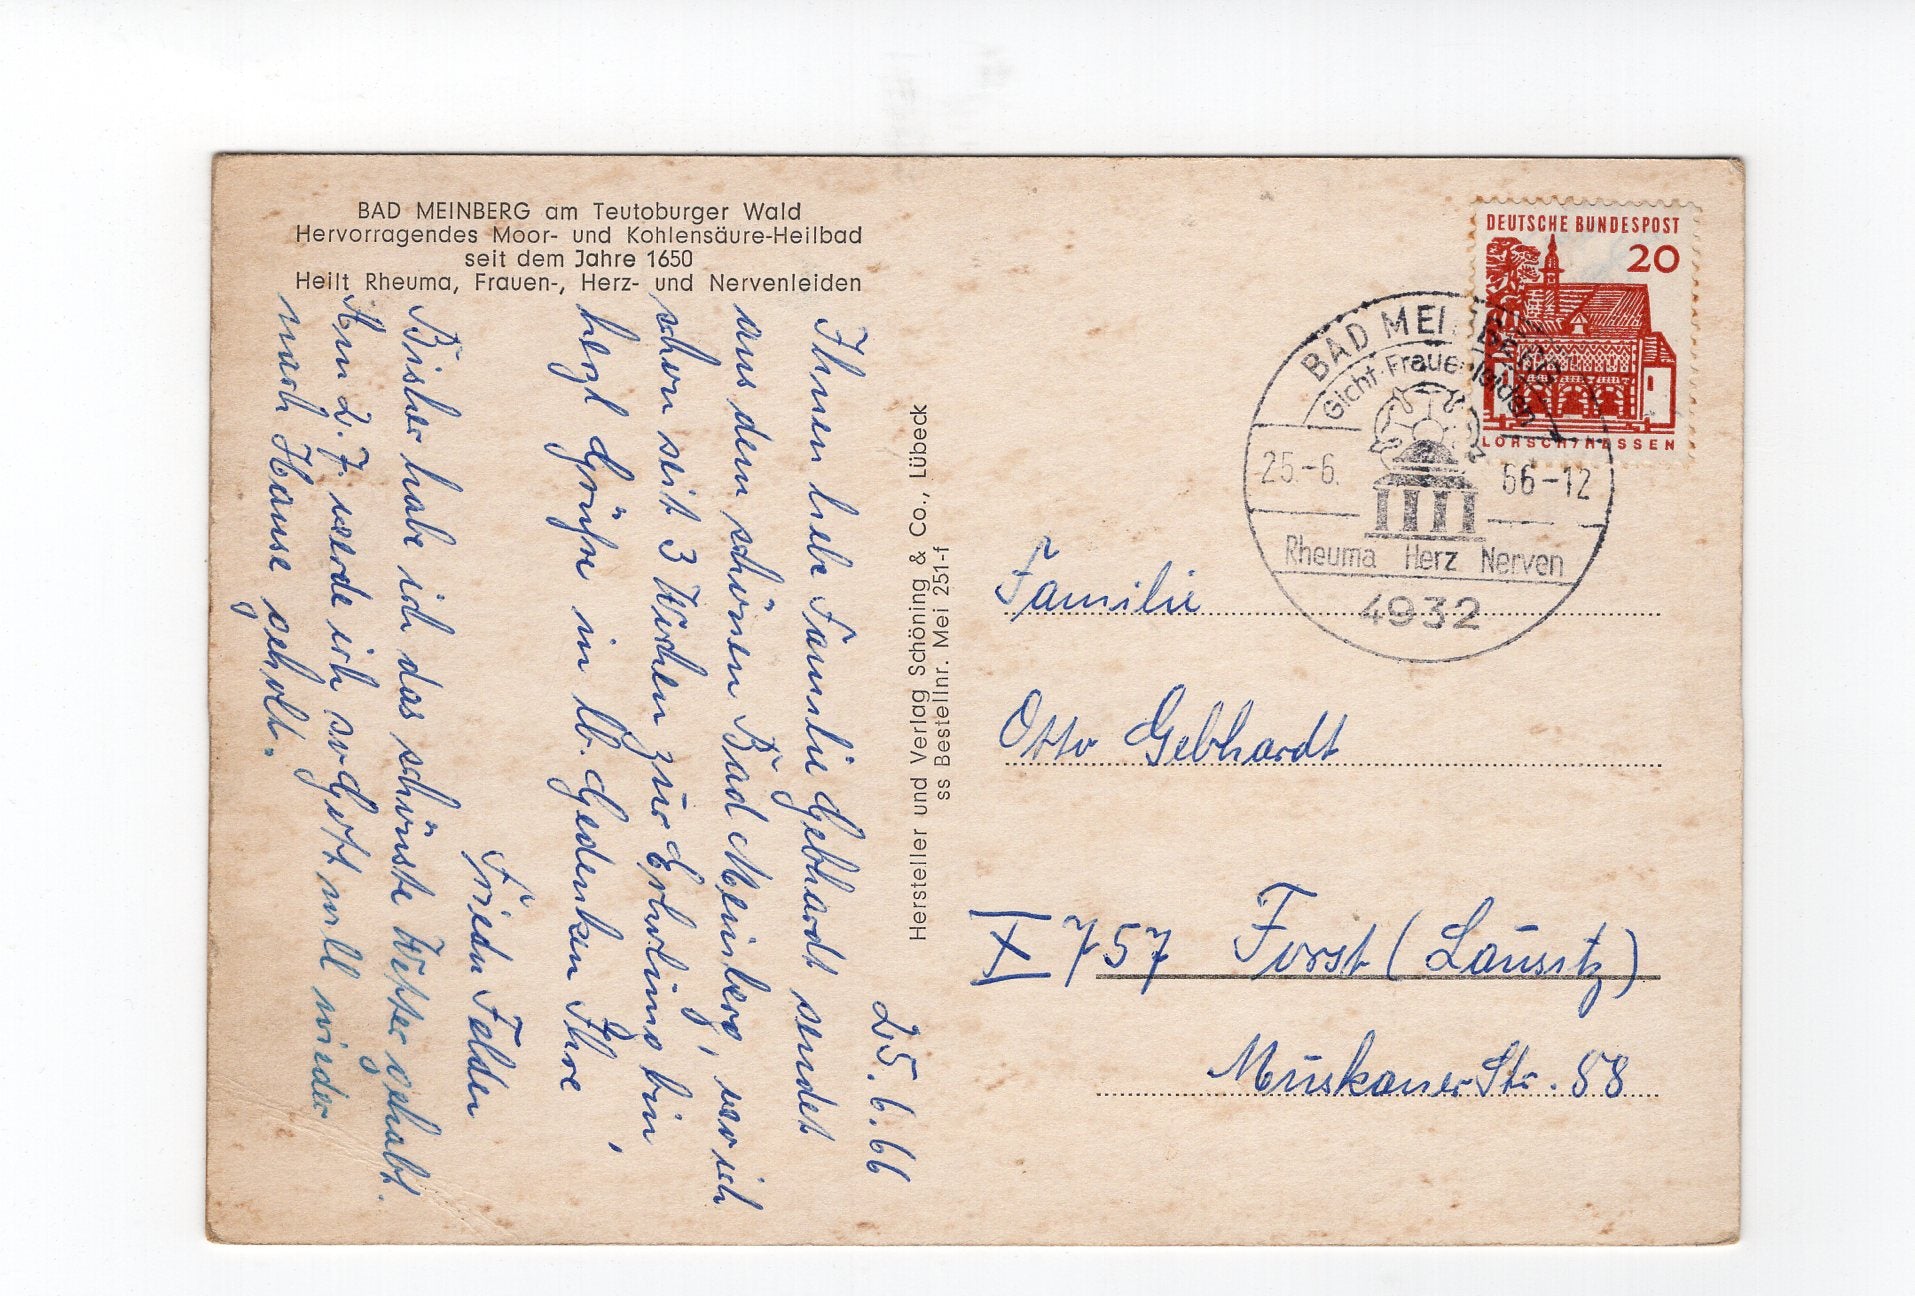 BAD MEINBERG am Teutoburger Wald
Hervorragendes Moor- und Kohlensäure-Heilbad
seit dem Jahre 1650
Heilt Rheuma, Frauen-, Herz- und Nervenleiden
25.6.66
Ihnen liebe Familie Gebhardt sendet
aus dem schönen Bad Meinberg, wo ich
schon seit 3 Wochen zur Erholung bin,
herzl Grüße in lb. Gedenken Ihre
Frieda
Bisher habe ich das schönste Wetter gehabt.
Am 2.7. werde ich so Gott will wieder
nach Hause geholt.
Hersteller und Verlag Schöning & Co., Lübeck
ss Bestellnr. Mei 251-f
DEUTSCHE BUNDESPOST
20
LORSCH/HESSEN
BAD MEINBERG
Gicht-Frauenleiden
25.-6. 66-12
Rheuma Herz Nerven
4932
Familie
Otto Gebhardt
X 757 Forst (Lausitz)
Muskauer Str. 58